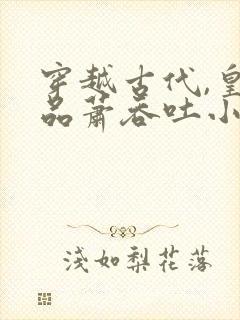 穿越古代,皇
品萧吞吐小
浅如梨花落